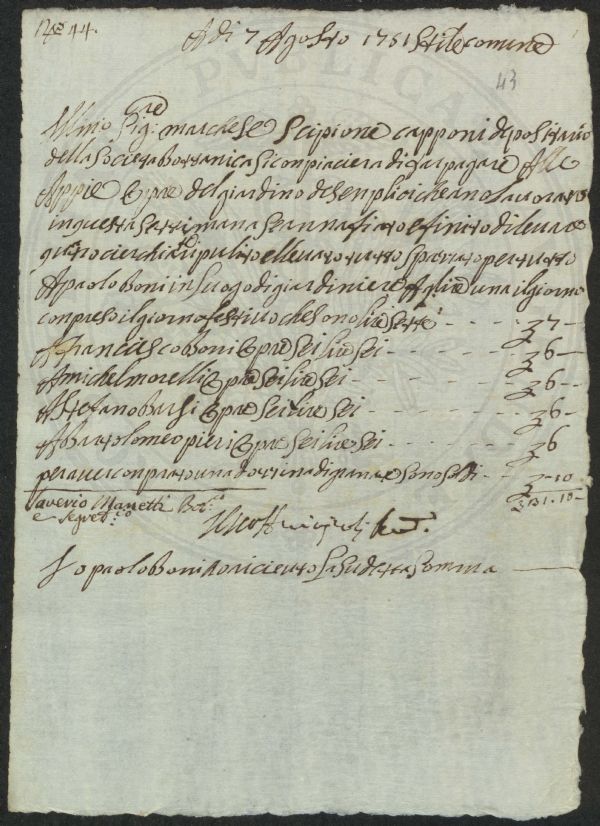 N.º 44.
A di 7 Agosto 1751 stile comune
43
Illmo Sig:re marchese Scipione capponi depositario
della Societa Bottanica si conpiacera di far pagare Alle
Appie Opre del giardino de senplici che ano lavorato
in questa settimana seanna fiato e finito di levare
quattro cierchi ripulito ellevato tutto spazzato per tutto
A paolo Boni in luogo di giardiniere A lire una il giorno
conpreso il giorno festivo che sono lire sette - - - £ 7 -
A franciesco Boni Opre sei lire sei - - - £ 6 -
A michel morelli Opre sei lire sei - - - £ 6 -
A Stefano Barsi Opre sei lire sei - - - £ 6 -
A Bartolomeo pieri Opre sei lire sei - - - £ 6
per aver conprato una dozzina di granate sono soldi - £ -10
£ 31.10 -
Saverio Manetti Bot.co
e Segret.rio
Io paolo Boni o riceuto la sudetta somma
PUBLICA